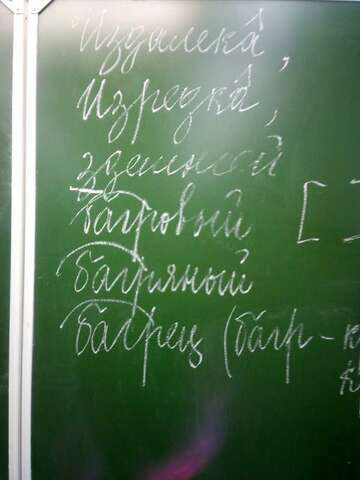 Издалека,
Изредка,
здешней
багровый [
багряный
багрец (багр - к